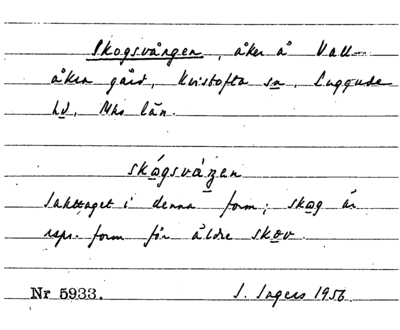 Skogsvången, åker å Vall-
åkra gård, Kvistofta sn, Luggude
hd, Mhs län.
skågsvåŋen
Iakttaget i denna form; skog är
repr. form för äldre skov.
Nr 5933. I. Ingers 1956